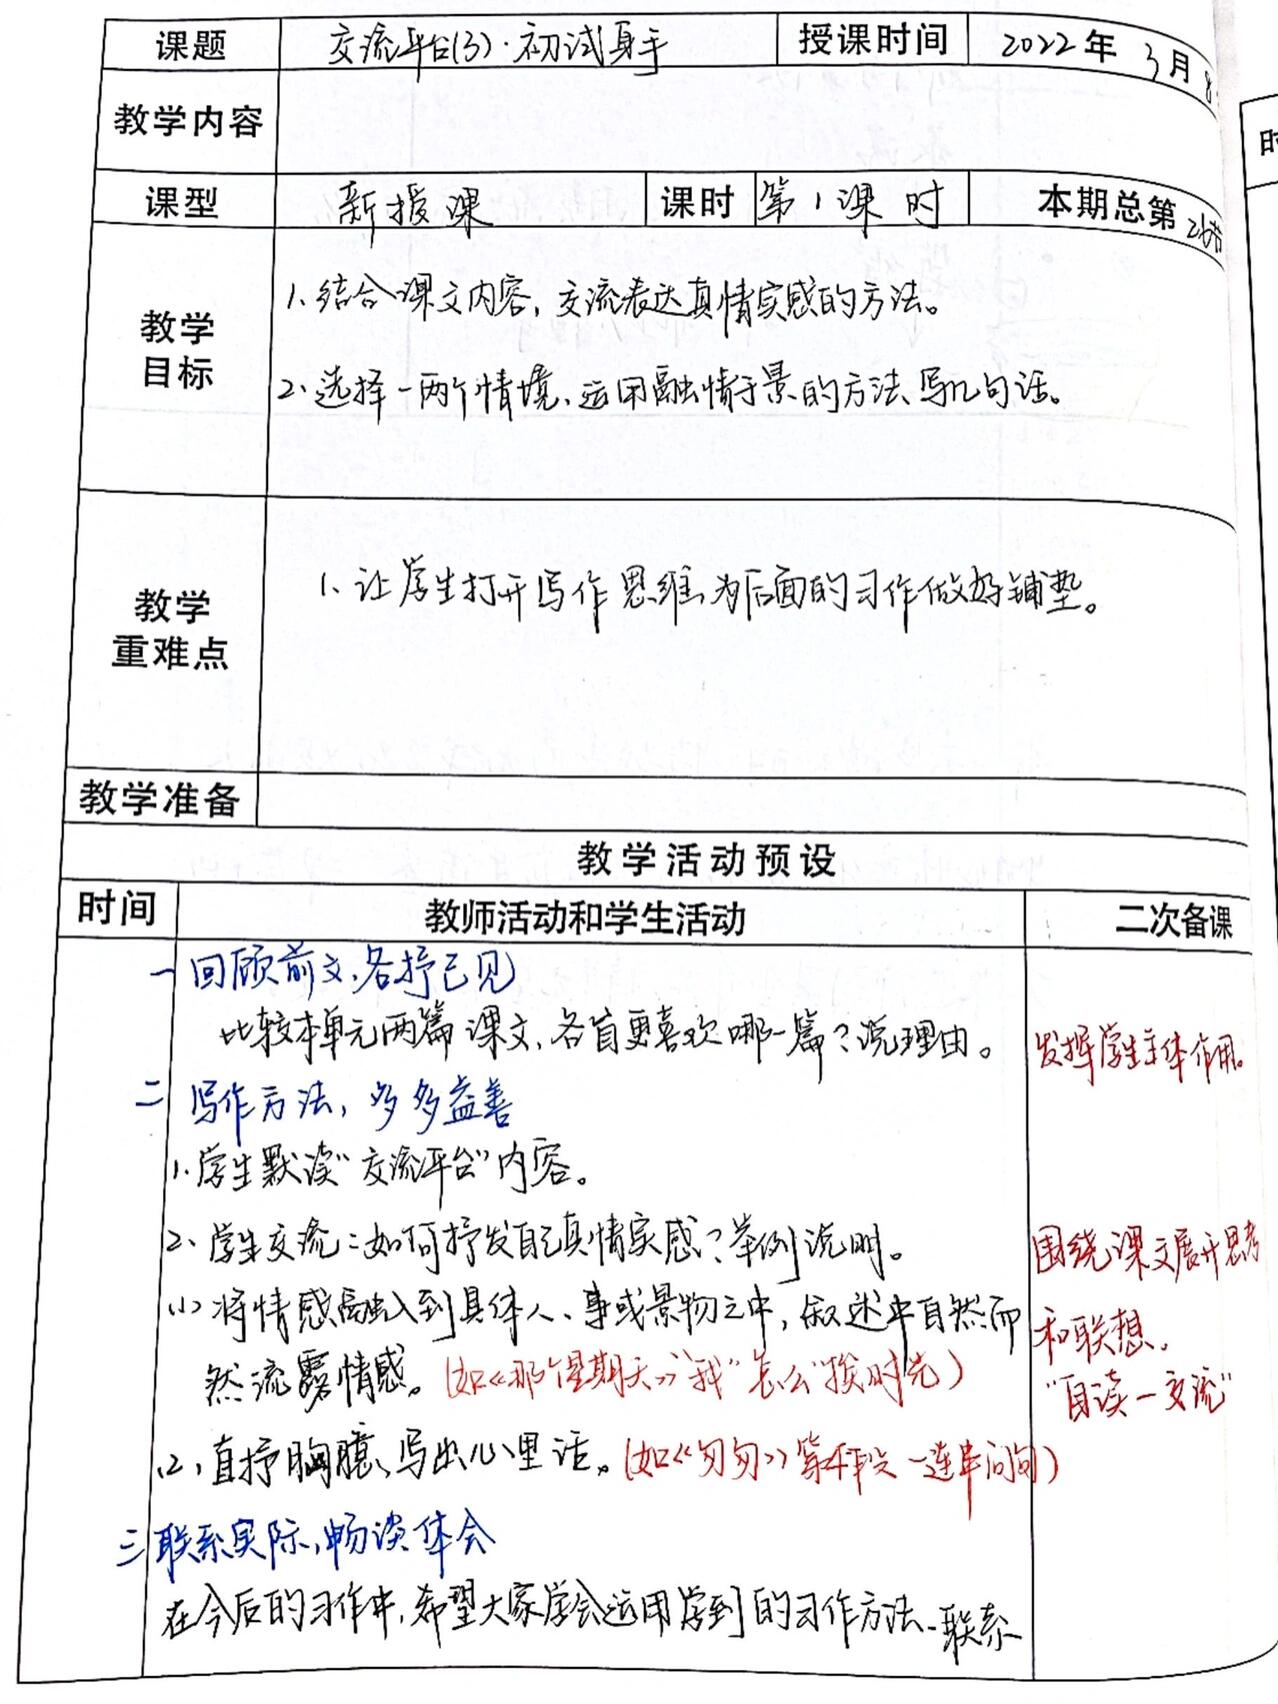 课题 交流平台(3)·初试身手 授课时间 2022年 3月8
教学内容
课型 新授课 课时 第1课时 本期总第 节
教学目标
1、结合课文内容，交流表达真情实感的方法。
2、选择一两个情境、运用融情于景的方法、写几句话。
教学重难点
1、让学生打开写作思维，为后面的习作做好铺垫。
教学准备
教学活动预设
时间 教师活动和学生活动 二次备课
一 回顾前文，各抒己见
比较本单元两篇课文，各自更喜欢哪一篇？说理由。
发挥学生主体作用。
二 写作方法，多多益善
1、学生默读“交流平台”内容。
2、学生交流：如何抒发自己真情实感？举例说明。
围绕课文展开思考
(1)将情感融入到具体人、事或景物之中，叙述中自然而
和联想。
然流露情感。(如《那个星期天》“我”怎么“挨时光)
“自读一交流”
(2)直抒胸臆、写出心里话。(如《匆匆》第4段 一连串问句)
三 联系实际，畅谈体会
在今后的习作中，希望大家学会运用学到的习作方法、联系
时